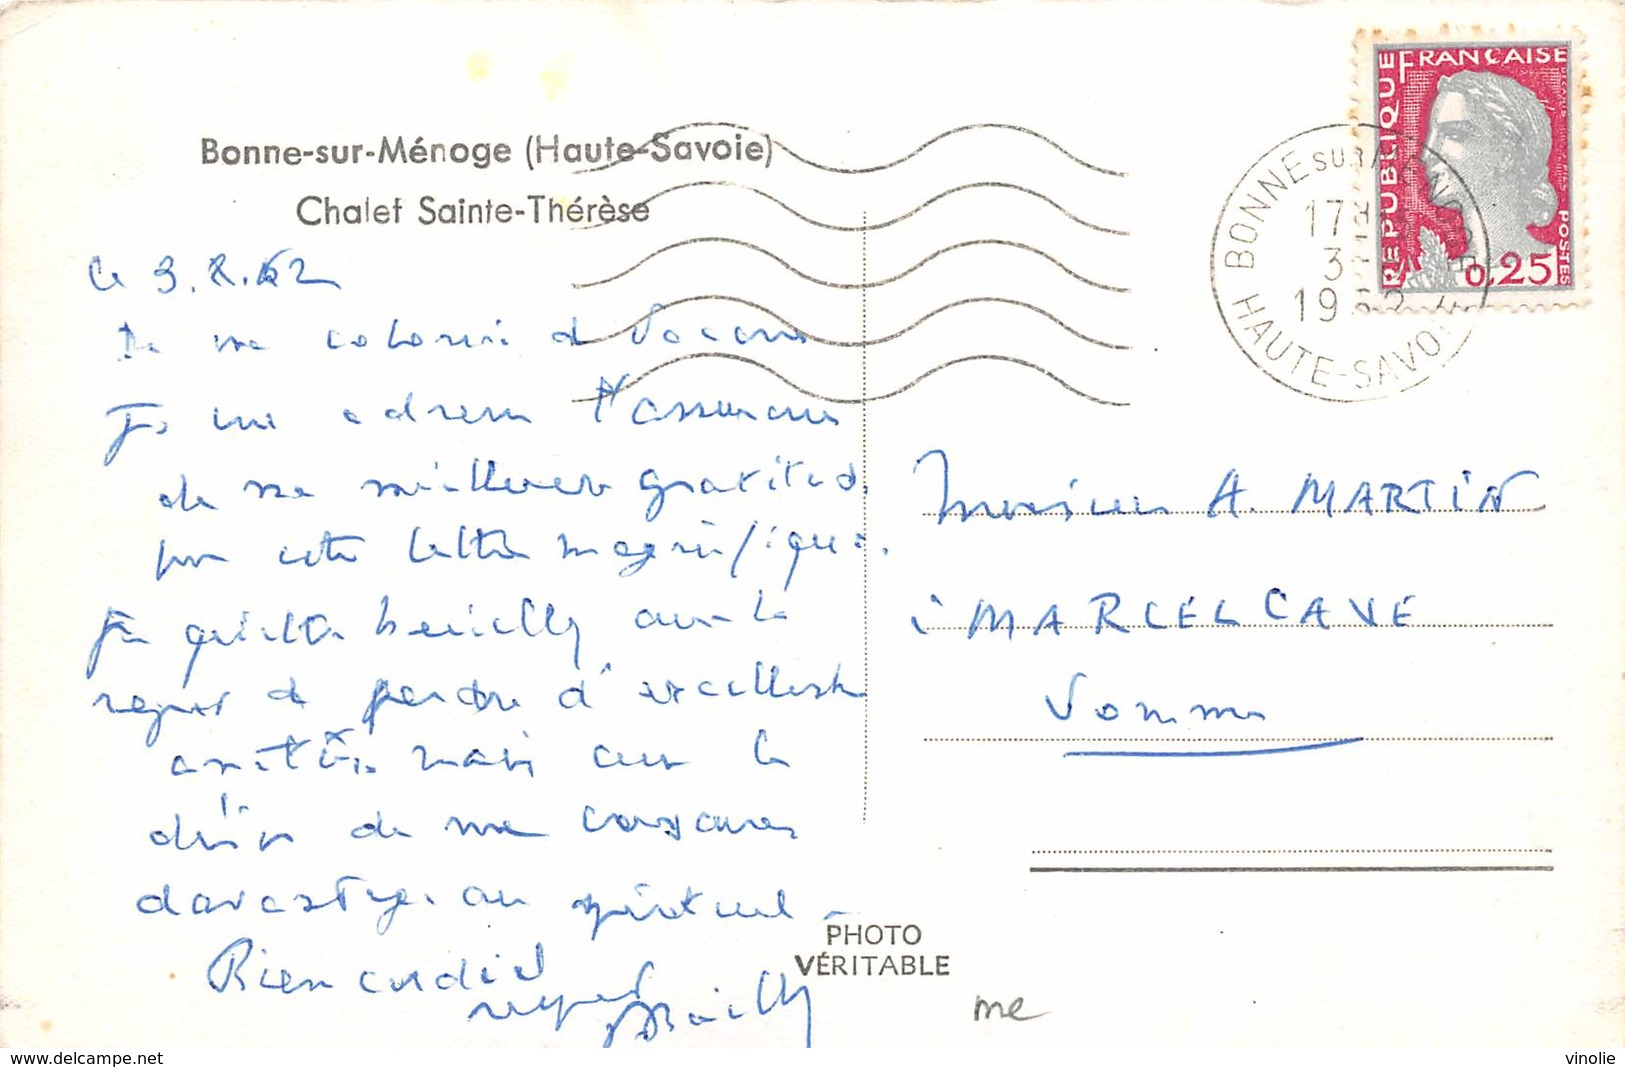 Bonne-sur-Ménoge (Haute-Savoie)
Chalet Sainte-Thérèse
REPUBLIQUE FRANÇAISE
POSTES
0,25
BONNE SUR MENOGE
17H
3
1962
HAUTE-SAVOIE
le 3.8.62
De ma colonie de Vacances
je vous adresse l'assurance
de ma meilleure gratitude
pour cette lettre magnifique.
Je quitte avec le
regret de perdre d'excellentes
amitiés, mais avec le
désir de me consacrer
davantage au spirituel
Bien cordial
Bailly
Monsieur A. MARTIN
à MARCELCAVE
Somme
PHOTO
VÉRITABLE
me
www.delcampe.net
vinolie